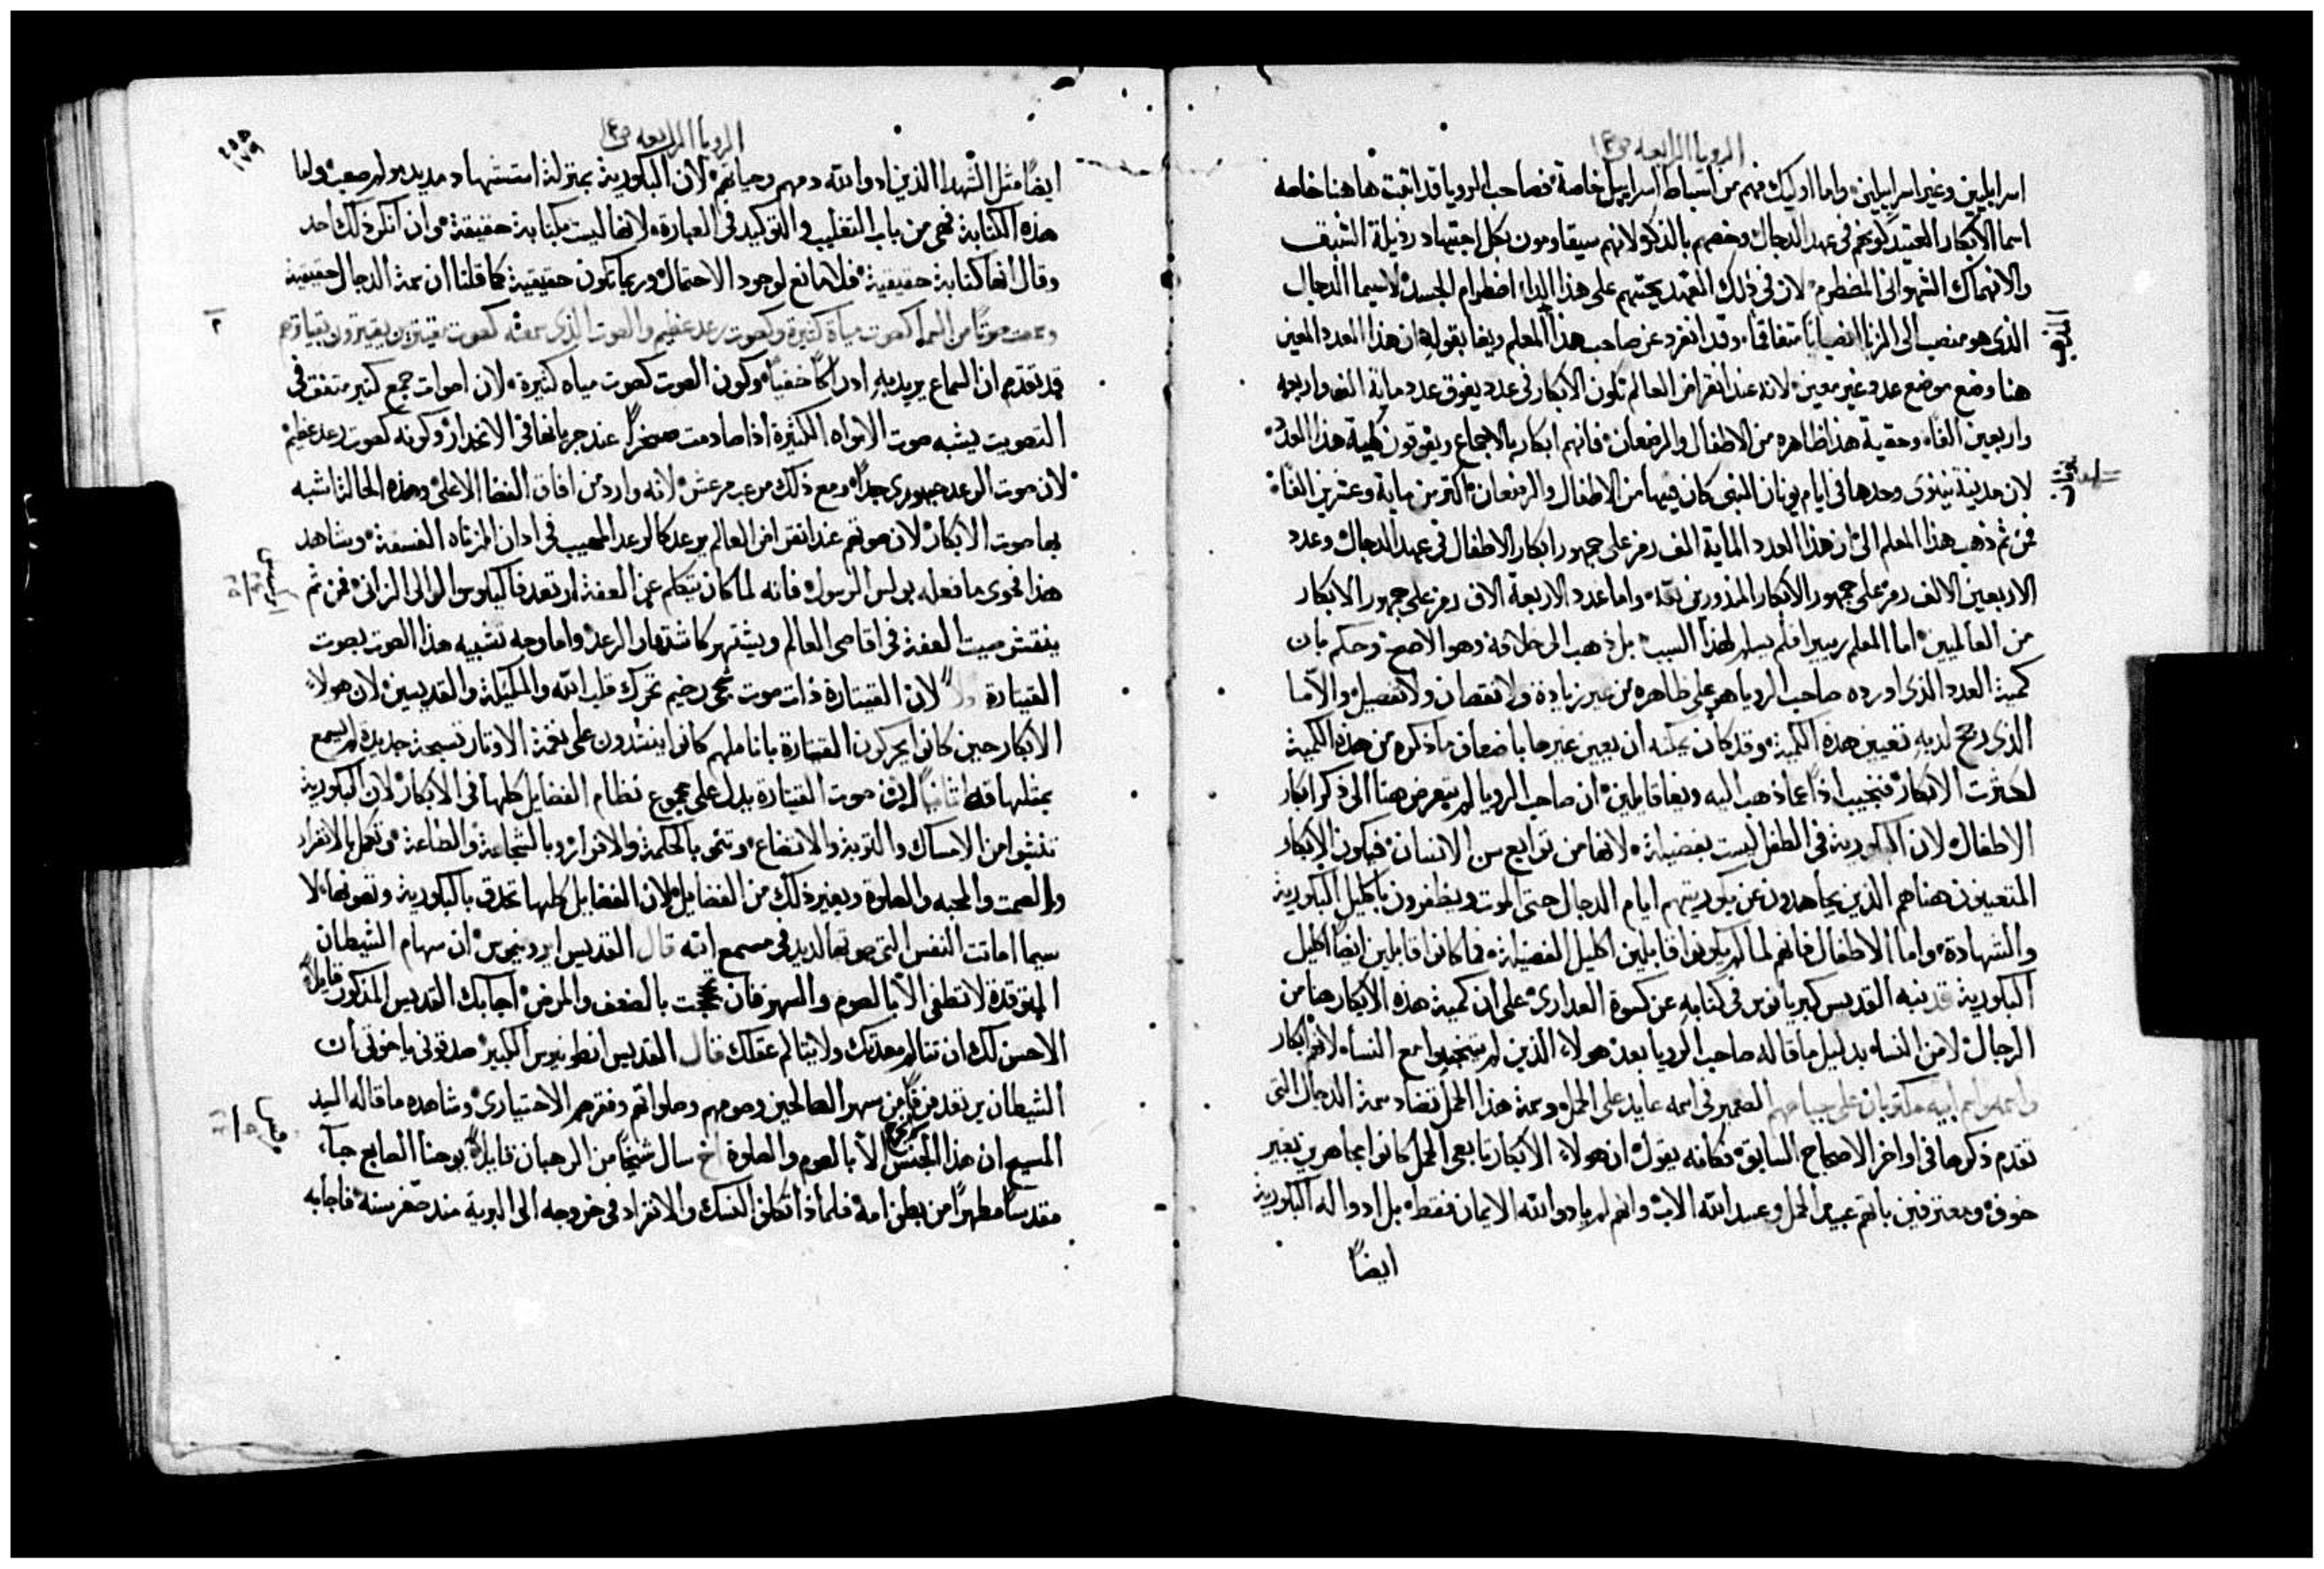 الرويا الرابعه ص١٤
اسراييليين وغير اسراييليين، واما اوليك فهم من اسباط اسراييل خاصة، فصاحب الرويا قد اثبت هاهنا خاصه
اسما الابكار العتيد كونهم في عهد الدجال وخصهم بالذكر لانهم سيقاومون بكل اجتهاد رذيلة الشبق
والانهماك الشهواني المضطرم، لان في ذلك العهد يحثهم على هذا الداء اضطرام الجسد لاسيما الدجال
الذي هو منصب الى الزنا انصبابًا متفاقمًا، وقد انفرد عن صاحب هذا المعلم ويغا بقوله ان هذا العدد المعين
هنا وضع موضع عدد غير معين، لانه عند انقراض العالم تكون الابكار في عدد يفوق عدد ماية الف واربعه
واربعين الفًا، وحقية هذا ظاهره من الاطفال والرضعان، فانهم ابكار بالاجماع ويفوقون كمية هذا العدد
لان مدينة نينوى وحدها في ايام يونان النبي كان فيها من الاطفال والرضعان اكثر من ماية وعشرين الفًا،
يونان
فمن ثم ذهب هذا المعلم الى ان هذا العدد الماية الف رمز على جمهور ابكار الاطفال في عهد الدجال وعدد
الاربعين الالف رمز على جمهور الابكار المنذورين لله، واما عدد الاربعة الاف رمز على جمهور الابكار
من العالميين، اما المعلم ريبيرا فلم يسلم لهذا السبب، بل ذهب الى خلافه وهو الاصح، وحكم بان
كمية العدد الذي اورده صاحب الرويا هو على ظاهره من غير زيادة ولا نقصان ولا تفصيل، والا ما
الذي رجح لديه تعيين هذه الكمية، وقد كان يمكنه ان يعين غيرها باضعاف ما ذكره من هذه الكمية
لكثرت الابكار، فنجيب اذًا عما ذهب اليه ويغا قايلين، ان صاحب الرويا لم يتعرض هنا الى ذكر ابكار
الاطفال، لان البكورية في الطفل ليست بفضيلة، لانها من توابع سن الانسان، فيكون الابكار
المتعينون هنا هم الذين يجاهدون عن بكوريتهم ايام الدجال حتى الموت ويظفرون باكليل البكورية
والشهادة، واما الاطفال فانهم لما لم يكونوا قابلين اكليل الفضيلة، فما كانوا قابلين ايضًا اكليل
البكورية قد نبه القديس كبريانوس في كتابه عن كسوة العذارى، على ان كمية هذه الابكار هنا من
الرجال، لا من النساء بدليل ما قاله صاحب الرويا بعد هولاء الذين لم يتنجسوا مع النساء لانهم ابكار
واسمه واسم ابيه مكتوبان على جباههم الضمير في اسمه عايد على الحمل، وسمة هذا الحمل تضاد سمة الدجال التي
تقدم ذكرها في اواخر الاصحاح السابق، فكانه يقول، ان هولاء الابكار تابعي الحمل كانوا مجاهرين بغير
خوف، ومعترفين بانهم عبيد الحمل وعبيد الله الاب، وانهم لم يادوا لله الايمان فقط، بل ادوا له البكورية
ايضًا
الرويا الرابعه ص١٤
١٧٩
ايضًا مثل الشهدا الذين ادوا لله دمهم وحياتهم، لان البكورية بمنزلة استشهاد مديد مولم صعب، واما
هذه الكتابة فهي من باب التغليب والتوكيد في العبارة، لانها ليست بكتابة حقيقة، وان انكر ذلك احد
وقال انها كتابة حقيقية، فلا مانع لوجود الاحتمال، وربما تكون حقيقية كما قلنا ان سمة الدجال حقيقية
٢
وسمعت صوتًا من السما كصوت مياه كثيرة وكصوت رعد عظيم والصوت الذي سمعته كصوت مقيثرين يقيثرون بقياثرهم
قد تقدم ان السماع يريد به ادراكًا خفيًا، وكون الصوت كصوت مياه كثيرة، لان اصوات جمع كثير متفق في
التصويت يشبه صوت الامواه الكثيرة اذا صادمت صخرًا، عند جريانها في الانحدار، وكونه كصوت رعد عظيم
لان صوت الرعد جهوري جدًا، ومع ذلك مرعب مرعش، لانه وارد من افاق الفضا الاعلى، وهذه الحال اشبه
بها صوت الابكار، لان صوتهم عند انقراض العالم يرعد كالرعد المهيب في اذان الزناه الفسقة، وشاهد
هذا فحوى ما فعله بولس الرسول، فانه لما كان يتكلم عن العفة ارتعد فاليكوس الوالي الزاني، فمن ثم
ينفش صيت العفة في اقاصي العالم ويشتهر كاشتهار الرعد، واما وجه تشبيه هذا الصوت بصوت
القيثارة اولًا لان القيثارة ذات صوت شجي رخيم تحرك قلب الله والمليكة والقديسين، لان هولاء
الابكار حين كانوا يحركون القيثارة باناملهم كانوا ينشدون على نغمة الاوتار تسبحة جديدة لم يسمع
بمثلها قط، ثانيًا لان صوت القيثارة يدل على مجموع نظام الفضايل كلها في الابكار، لان البكورية
تنشوا من الامساك والتوبة والاتضاع، وتنمى بالحكمة والافراز وبالشجاعة والطاعة، وتكمل بالانفراد
والصمت والمحبه والصلوة وبغير ذلك من الفضايل، لان الفضايل كلها تحدق بالبكورية وتصونها، لا
سيما اماتت النفس التي صوتها لذيذ في مسمع الله قال القديس ايرونيموس، ان سهام الشيطان
المتوقدة لا تطفى الا بالصوم والسهر، فان تحججت بالضعف والمرض، اجابك القديس المذكور قايلًا
الاحسن لك ان تتالم معدتك ولا يتالم عقلك قال القديس انطونيوس الكبير، صدقوني يا اخوتي ان
الشيطان يرتعد فرقًا من سهر الصالحين وصومهم وصلواتهم وفقرهم الاختياري، وشاهده ما قاله السيد
المسيح ان هذا الجنس لا يخرج الا بالصوم والصلوة اخ سال شيخًا من الرهبان قايلًا، يوحنا الصابغ جاء
مقدسًا مطهرًا من بطن امه، فلماذا تكلف النسك والانفراد في خروجه الى البرية منذ صغر سنه، فاجابه